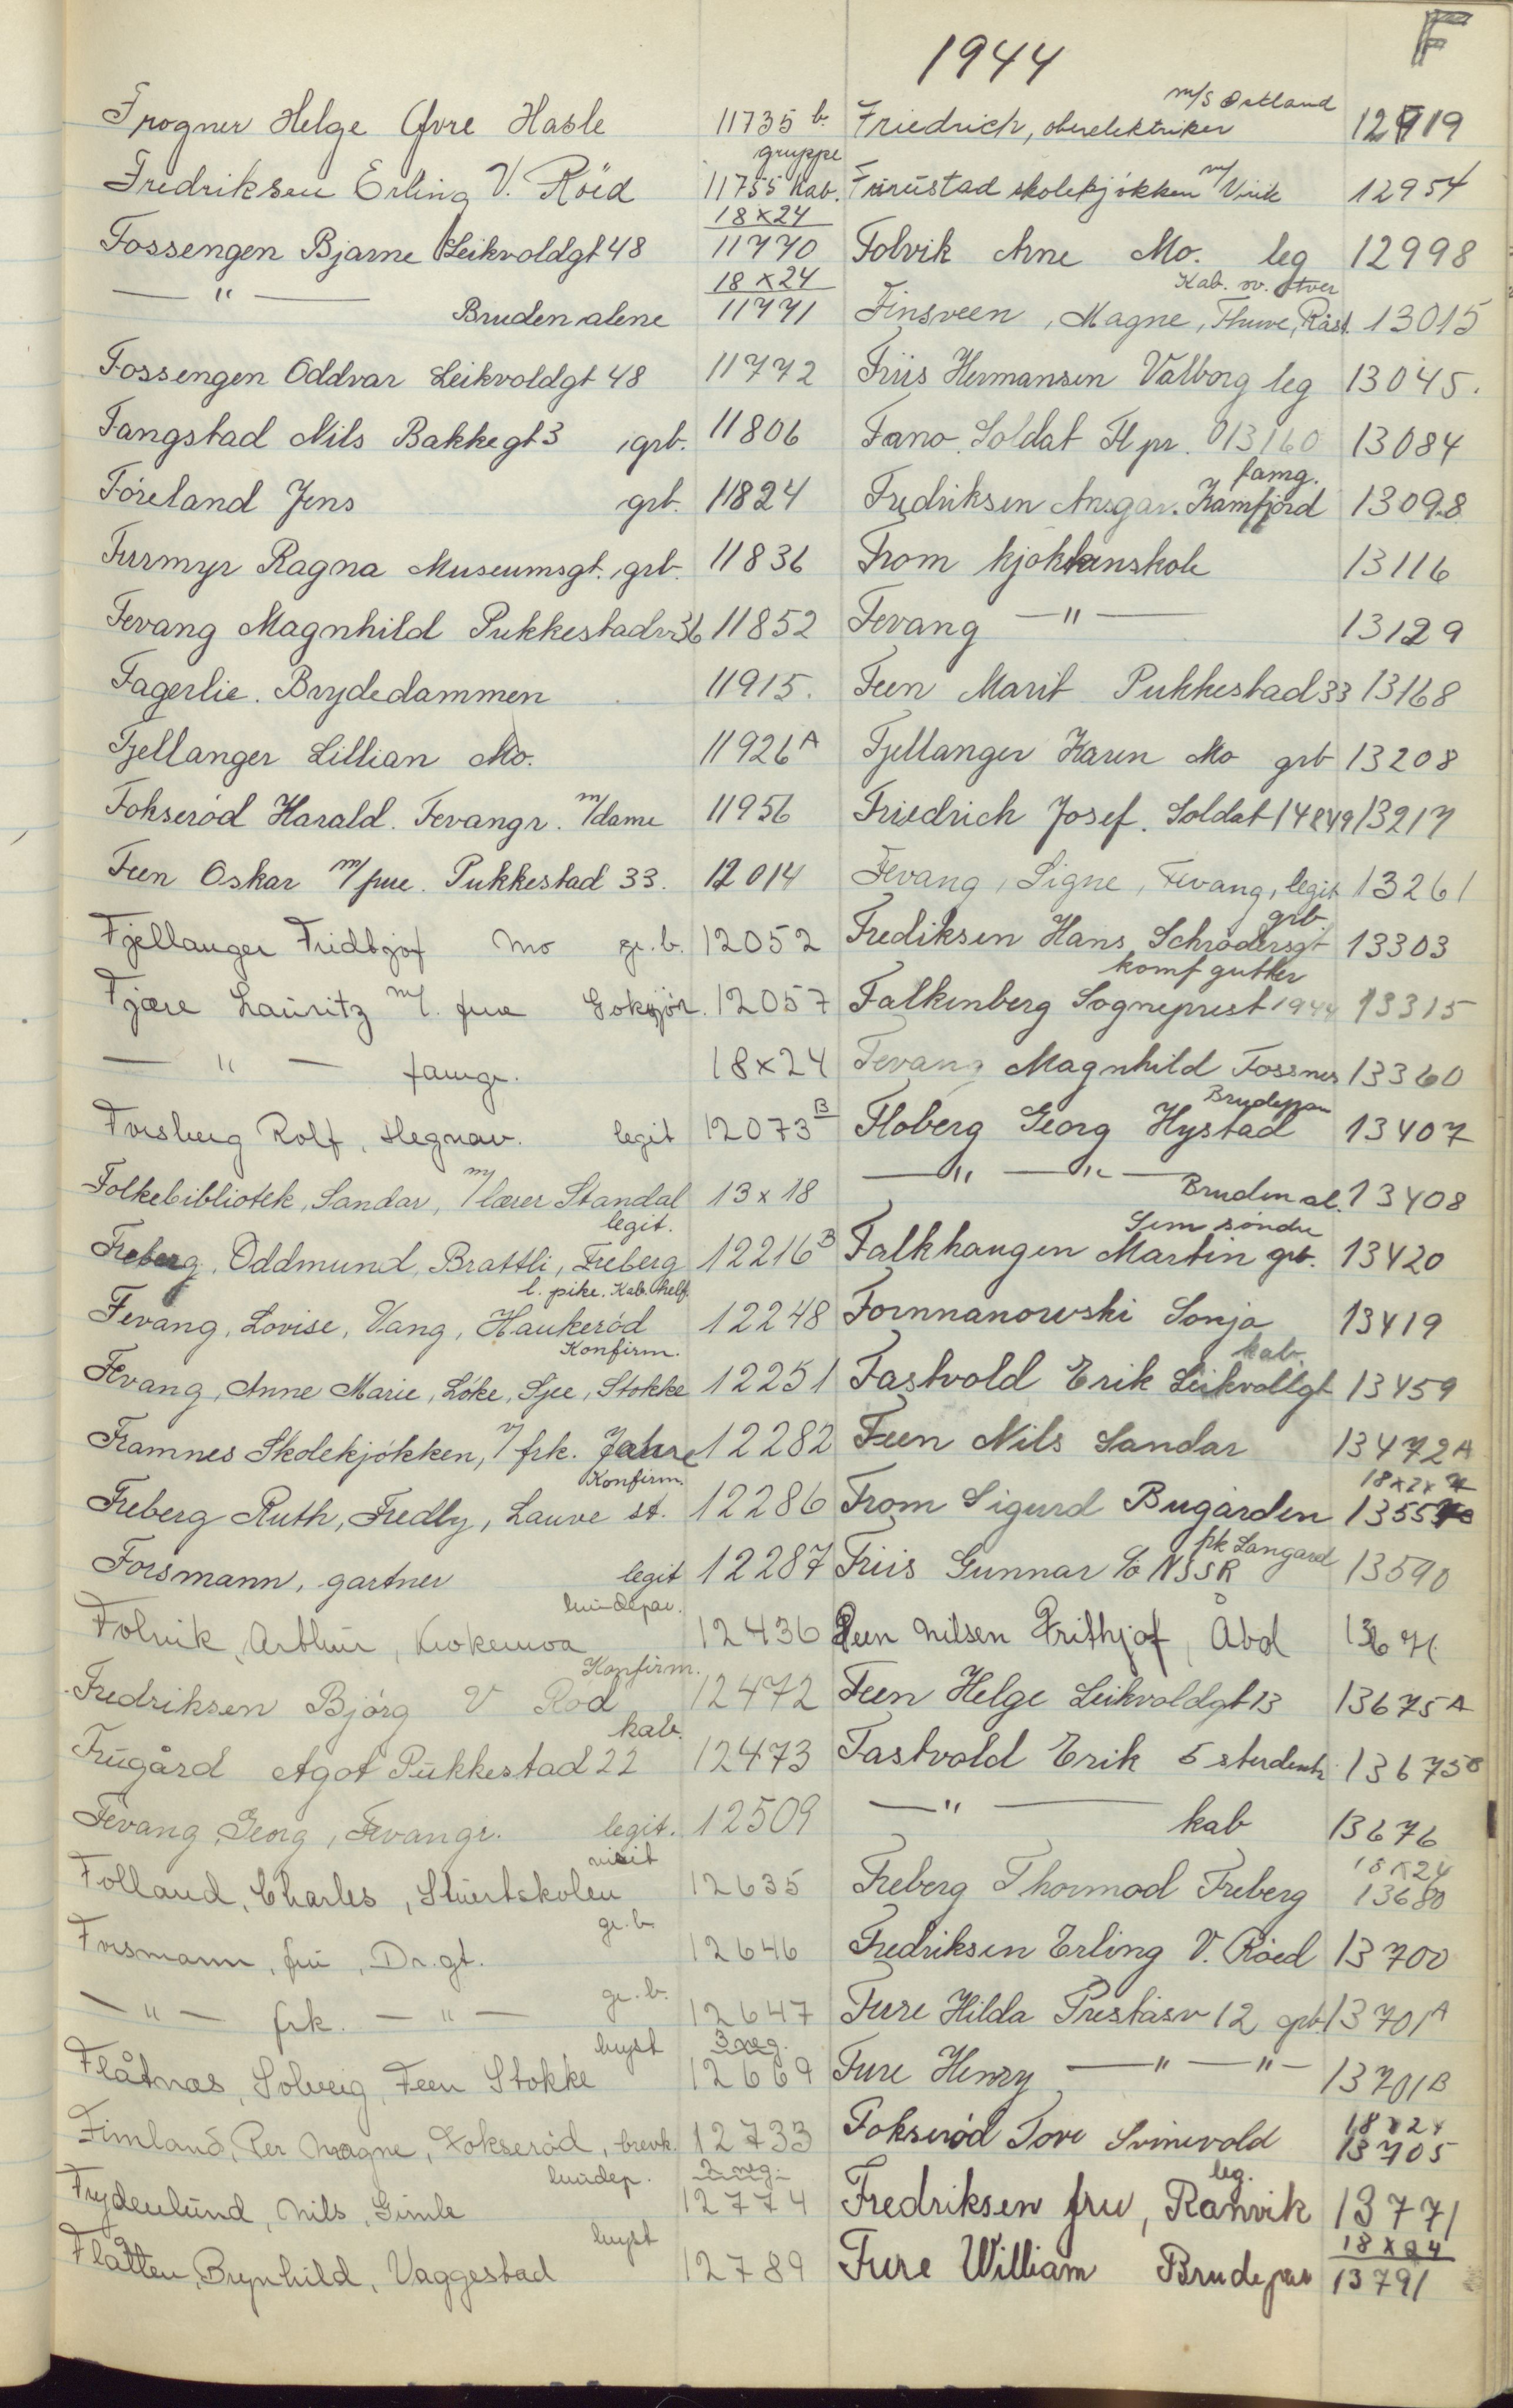 F
1944
Frogner Helge Øvre Hasle 11735 b.
gruppe
Fredriksen Erling V. Röed 11755 Kab.
18x24
Fossengen Bjarne Leikvoldgt 48 11770
18x24
— " — Bruden alene 11771
Fossengen Oddvar Leikvoldgt 48 11772
Fangstad Nils Bakkegt 3 grb. 11806
Föreland Jens grb. 11824
Furmyr Ragna Museumsgt. grb. 11836
Fevang Magnhild Pukkestadv. 36 11852
Fagerlie. Brydedammen 11915.
Fjellanger Lillian Mo. 11926 A
Fokseröd Harald. Fevangr. m/dame 11956
Feen Oskar m/frue. Pukkestad 33. 12014
Fjellanger Fridtjof Mo gr. b. 12052
Fjære Lauritz m/. frue Gokjör. 12057
— " — famgr. 18x24
Forsberg Rolf, Hegnav. legit 12073 B
Folkebibliotek, Sandar, m/lærer Standal 13x18
legit.
Freberg, Oddmund, Brattli, Freberg 12216 B
l. pike. Kab. helf.
Fevang, Lovise, Vang, Haukeröd 12248
Konfirm.
Fevang, Anne Marie, Löke, Sjee, Stokke 12251
Framnes Skolekjökken, m/ frk. Jahre 12282
Konfirm.
Freberg Ruth, Fredly, Lauve st. 12286
Forsmann, gartner legit 12287
brudepar.
Folvik, Arthur, Krokemoa 12436
Konfirm.
Fredriksen Björg V Rod 12472
kab.
Frugård Agot Pukkestad 22 12473
Fevang, Georg, Fevangr. legit. 12509
visit
Folland, Charles, Stuertskolen 12635
gr. b.
Forsmann, fru, Dr. gt. 12646
gr. b.
— " — frk. — " — 12647
bryst 3 neg.
Flåtnes, Solveig, Feen Stokke 12669
Fimland, Per Magne, Fokseröd, brevk. 12733
brudep. 2 neg.
Frydenlund, Nils, Gimle 12774
bryst
Flåtten, Brynhild, Vaggestad 12789
m/s Ostland
Friedrich, oberelektriker 12919
Furustad skolekjökken m/Virik 12954
Folvik Arne Mo. leg 12998
Kab. ov. tver
Finsveen, Magne, Thuve, Råst. 13015
Friis Hermansen Valborg leg 13045.
Fano. Soldat Fl pr. 013160 13084
famg.
Fredriksen Ansgar. Kamfjord 13098
From kjökkenskole 13116
Fevang — " — 13129
Feen Marit Pukkestad 33 13168
Fjellanger Karen Mo grb 13208
Friedrich Josef. Soldat 14849 13217
Fevang, Signe, Fevang, legit 13261
grb.
Frediksen Hans Schrödersgt 13303
komf gutter
Falkenberg Sogneprest 1944 13315
Fevang Magnhild Fossnes 13360
Brudepar
Floberg Georg Hystad 13407
— " — " — Bruden al. 13408
Sem söndre
Falkhaugen Martin grb. 13420
Fornnanowski Sonja 13419
kab
Fastvold Erik Leikvollgt 13459
Feen Nils Sandar 13472 A
18x24
From Sigurd Bugården
frk Langard
Friis Gunnar c/o NSSR 13590
Feen Nilsen Frithjof, Åbol
Feen Helge Leikvoldgt 13 13675 A
Fastvold Erik 5 studenter 13675 B
— " — kab 13676
18x24
Freberg Thormod Freberg 13680
Fredriksen Erling V. Röed 13700
Fure Hilda Preståsv 12 grb 13701 A
Fure Henry — " — " — 13701 B
18x24
Fokseröd Tove Svinevold 13705
leg.
Fredriksen fru, Ranvik 13771
18x24
Fure William Brudepar 13791